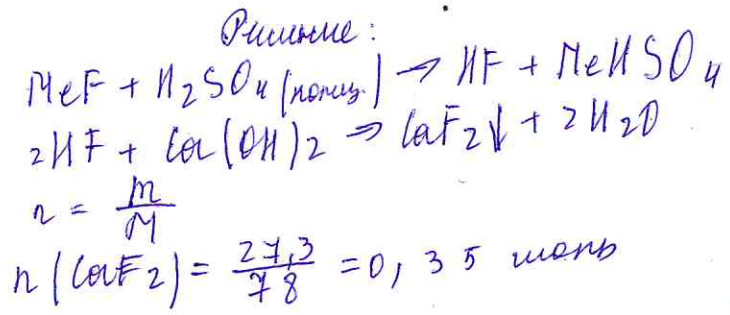 Решение:
MeF + H₂SO₄ (конц.) → HF + MeHSO₄
2HF + Ca(OH)₂ → CaF₂↓ + 2H₂O
n = m/M
n(CaF₂) = 27,3/78 = 0,35 моль